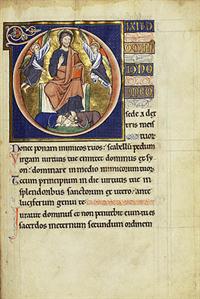 DIXIT D
sede a dex
tris meis
tuor
Donec ponam inimicos tuos: scabellū pedum
Virgam uirtutis tue emittet dominus ex sy
on: dominare in medio inimicorum tuor
Tecum principium in die uirtutis tue in
splendoribus sanctorum: ex utero ante
luciferum genui te
Iurauit dominus et non penitebit eum: tu es
sacerdos ineternum secundum ordinem